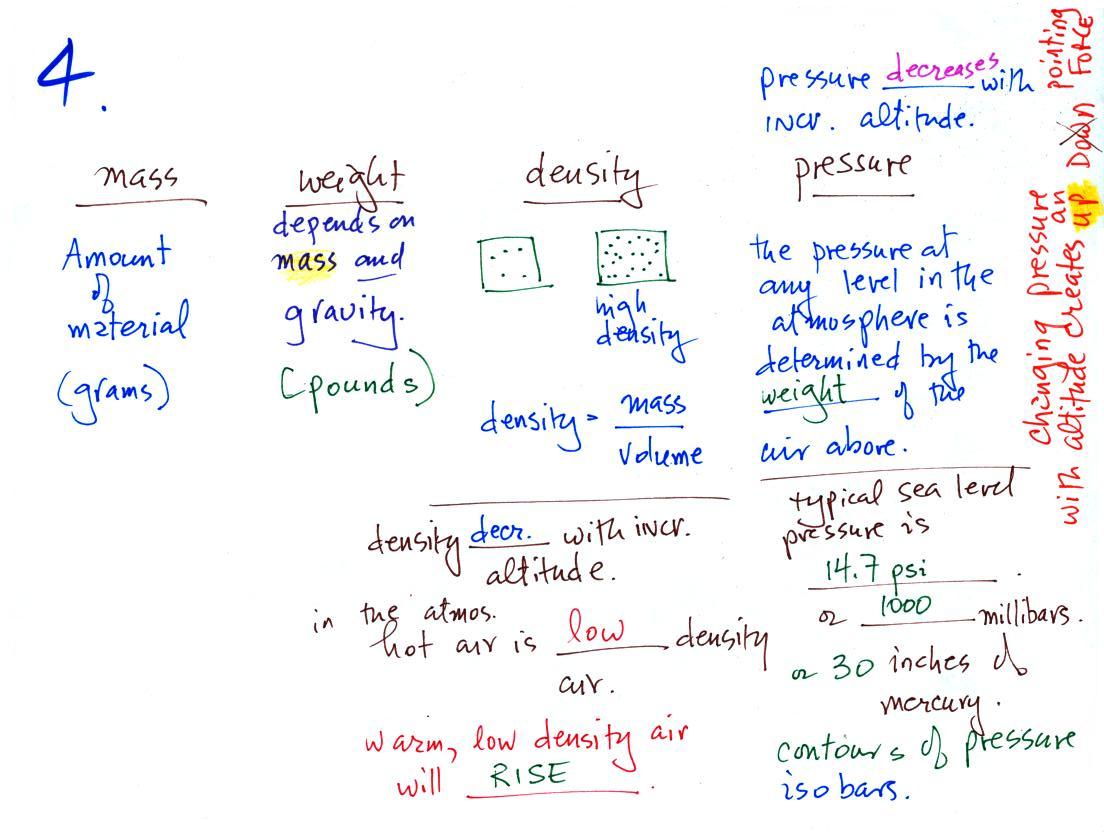 4.
mass
Amount
of
material
(grams)
weight
depends on
mass and
gravity.
(pounds)
density
high
density
density = mass
volume
density decr. with incr.
altitude.
in the atmos.
hot air is low density
air.
warm, low density air
will RISE.
pressure decreases with
incr. altitude.
pressure
the pressure at
any level in the
atmosphere is
determined by the
weight of the
air above.
typical sea level
pressure is
14.7 psi.
or 1000 millibars.
or 30 inches of
mercury.
contours of pressure
isobars.
changing pressure
with altitude creates an
up Down pointing
Force